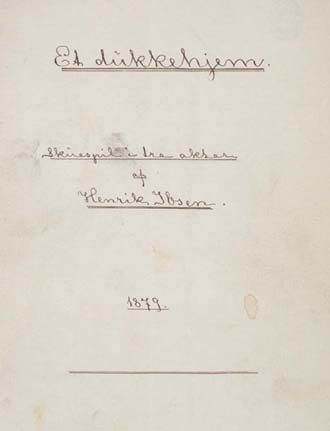 Et dukkehjem.
Skuespil i tre akter
af
Henrik Ibsen.
1879.